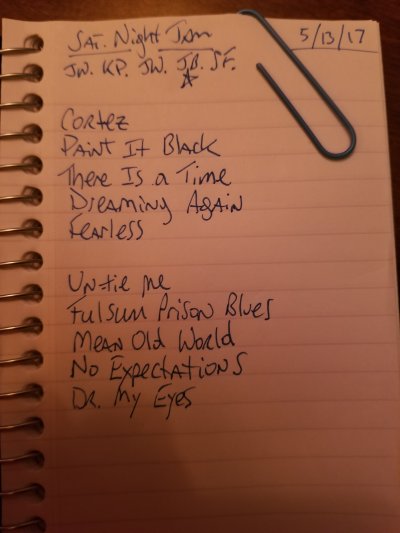 Sat. Night Jam 5/13/17
JW. KP. JW. JB. SF.
Cortez
Paint It Black
There Is a Time
Dreaming Again
Fearless
Untie Me
Fulsum Prison Blues
Mean Old World
No Expectations
Dr. My Eyes